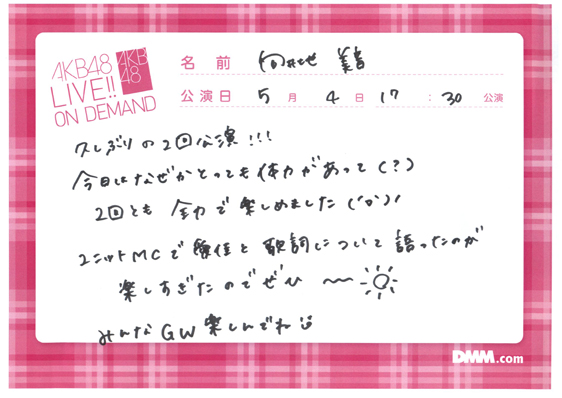 AKB48
LIVE!!
ON DEMAND
AKB
48
名前 向井地 美音
公演日 5月 4日 17:30公演
久しぶりの2回公演!!!
今日はなぜかとっても体力があって(?)
2回とも 全力で楽しめました('ω')!
ユニットMCで 優佳と 歌詞について 語ったのが
楽しすぎたのでぜひ 〜〜
みんな GW 楽しんでね
DMM.com